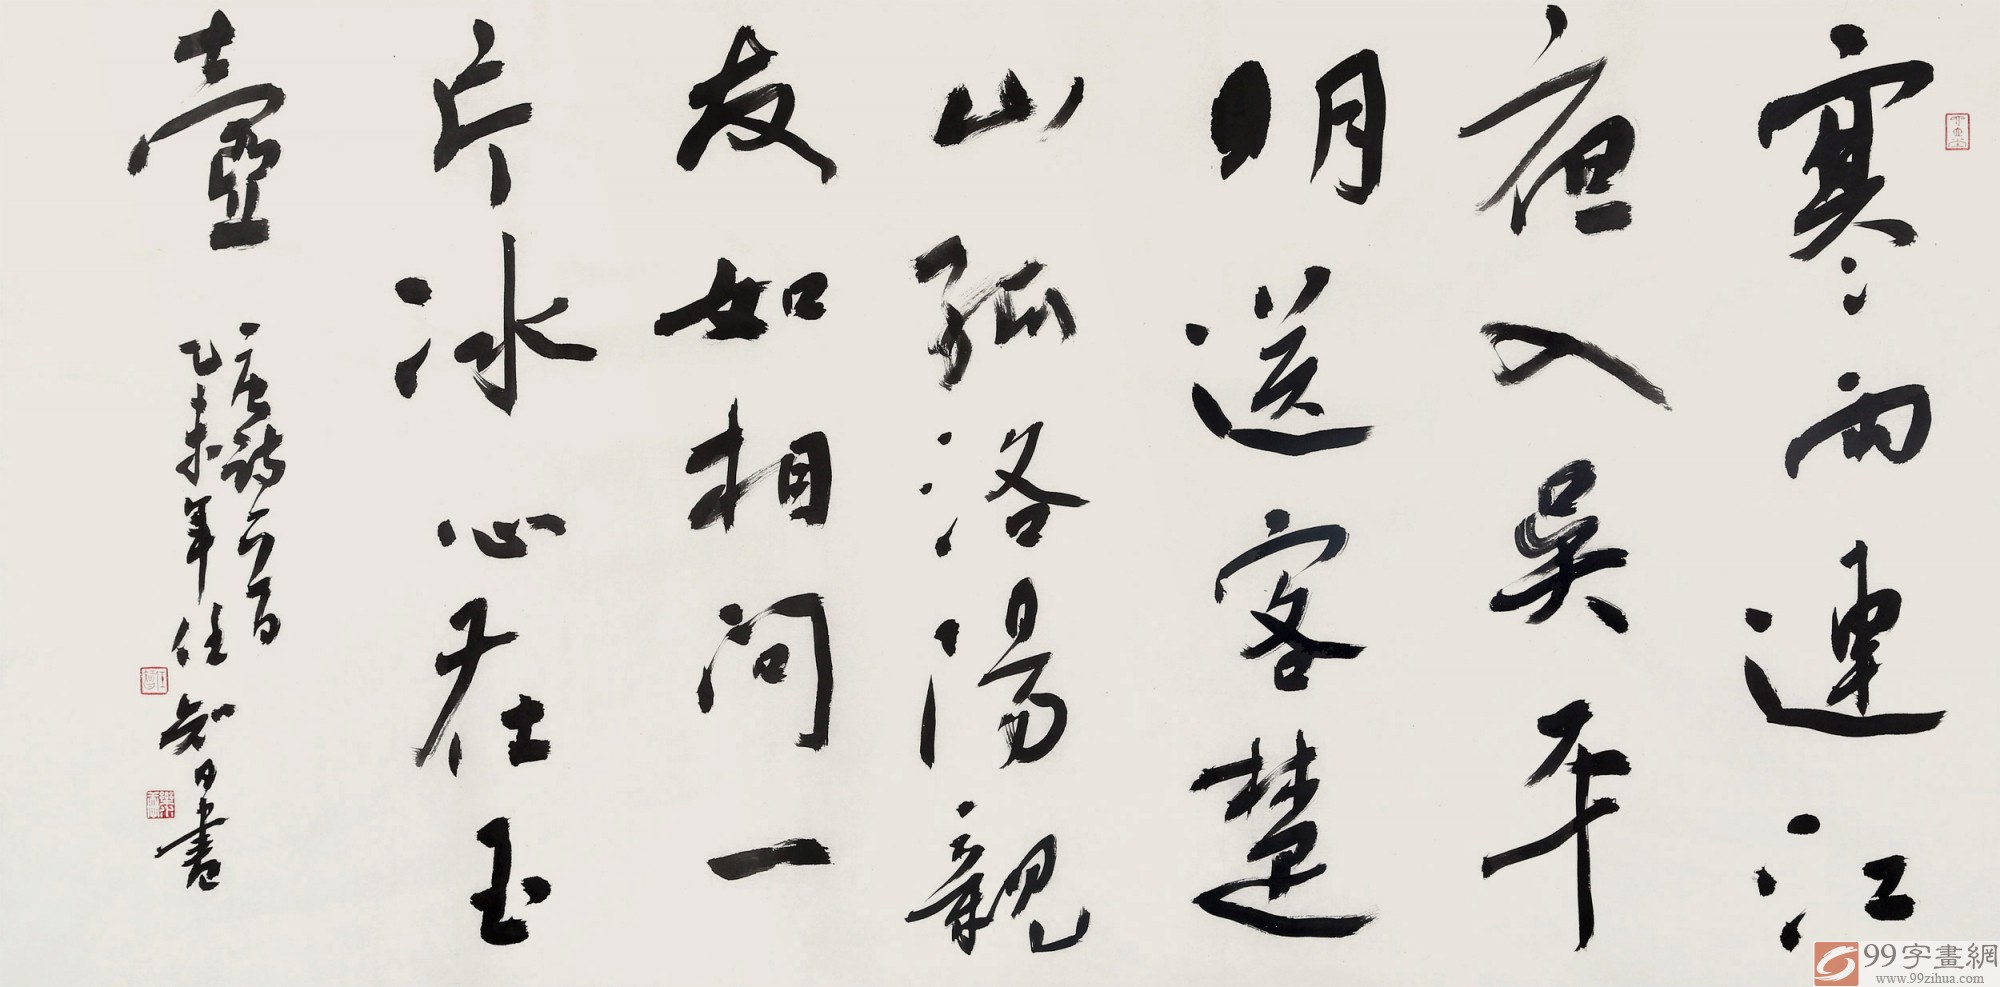 寒雨連江
夜入吴平
明送客楚
山孤洛陽親
友如相問一
片冰心在玉
壺
唐詩一首
乙未年任知日書
99字畫網
www.99zihua.com